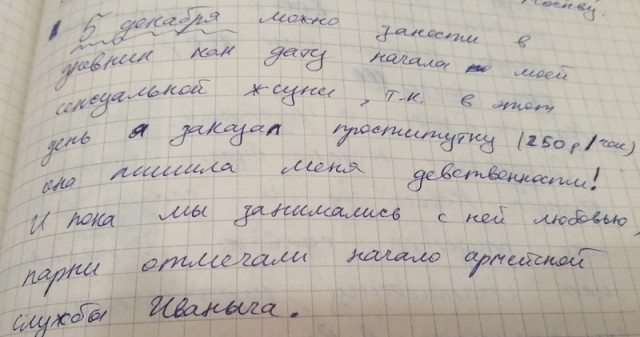 5 декабря можно занести в
дневник как дату начала моей
сексуальной жизни, т.к. в этот
день я заказал проститутку (250р/час)
она лишила меня девственности!
И пока мы занимались с ней любовью,
парни отмечали начало армейской
службы Иваныча.